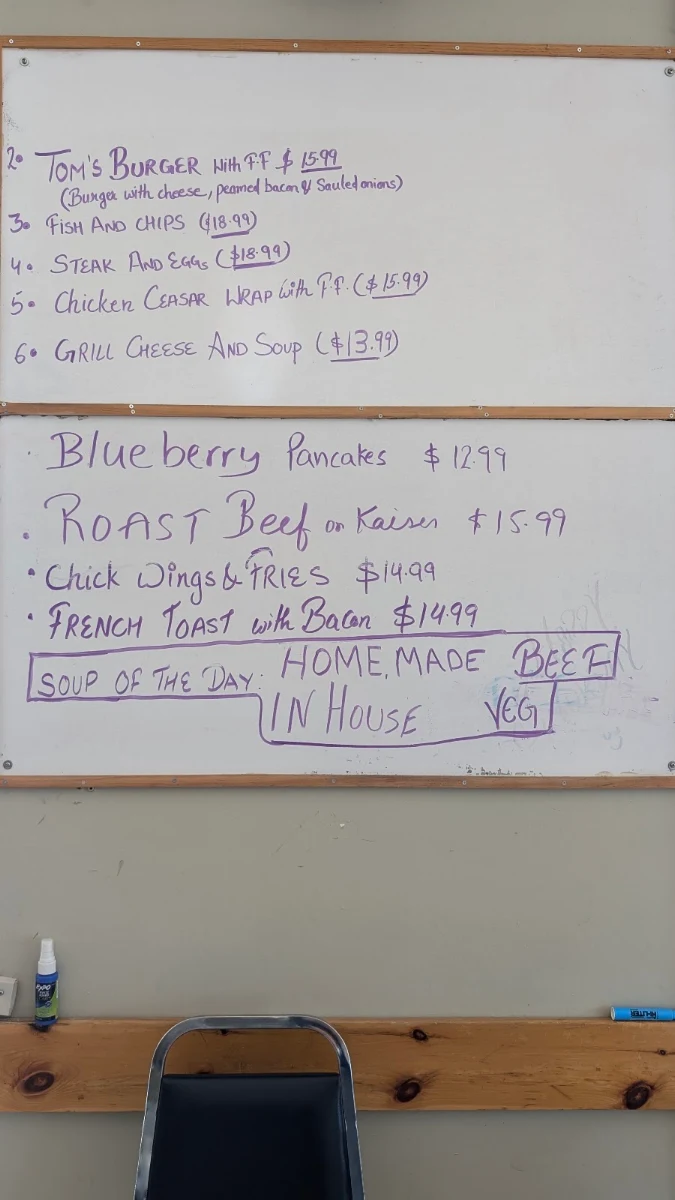 2. TOM'S BURGER With F.F $ 15.99
(Burger with cheese, peamed bacon & Sauled onions)
3. FISH AND CHIPS ($18.99)
4. STEAK AND EGGS ($18.99)
5. Chicken CEASAR WRAP with F.F. ($15.99)
6. GRILL CHEESE AND SOUP ($13.99)
· Blueberry Pancakes $ 12.99
· ROAST Beef on Kaiser $ 15.99
· Chick Wings & FRIES $14.99
· FRENCH TOAST with Bacon $14.99
SOUP OF THE DAY: HOME.MADE BEEF
IN HOUSE VEG
EXPO